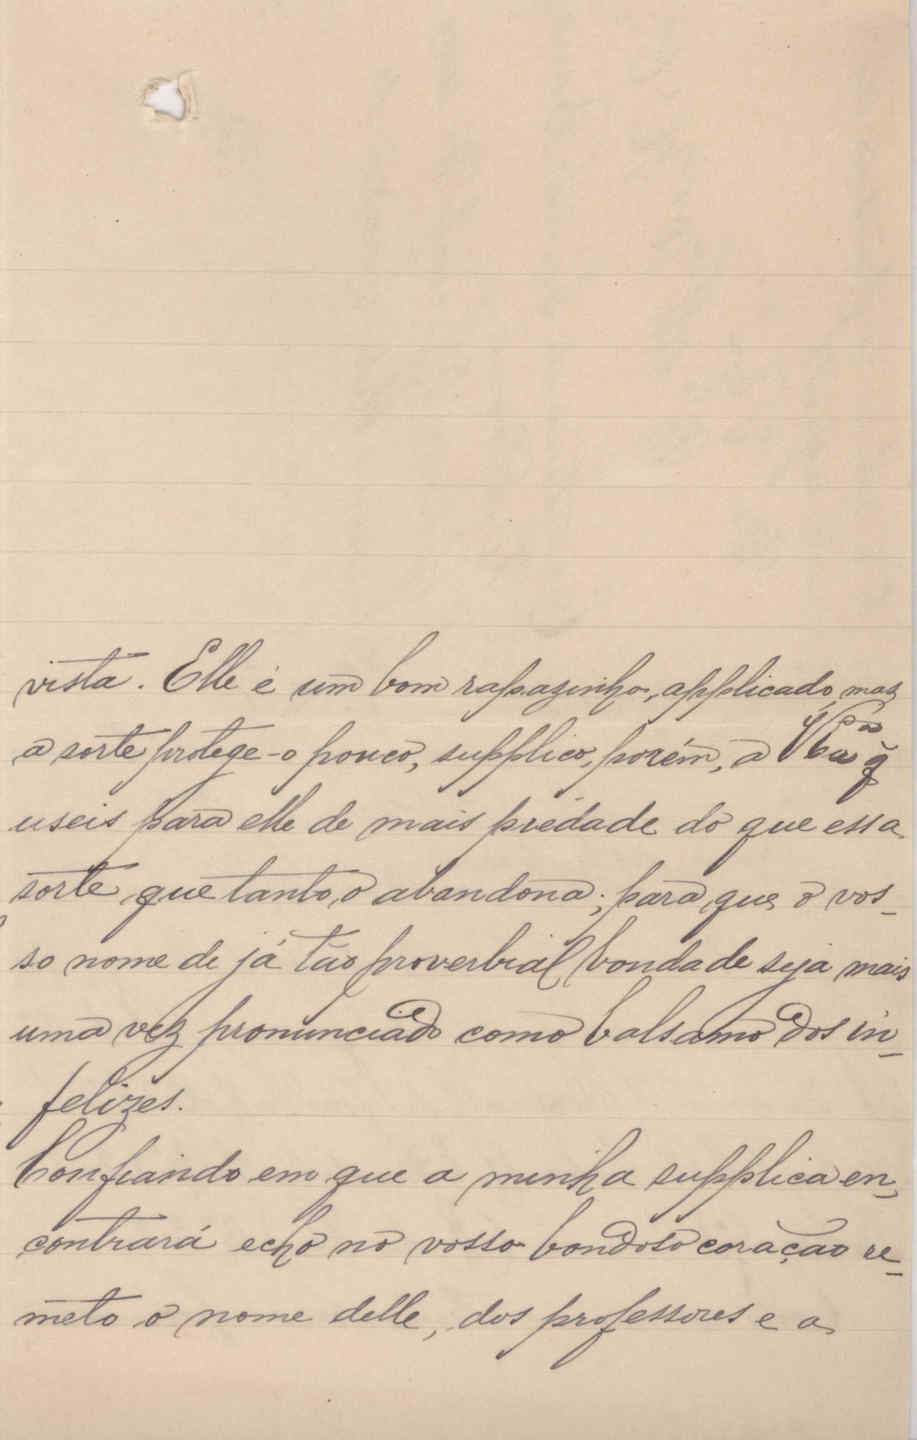 vista. Elle é um bom rapazinho, applicado, mas
a sorte protege-o pouco, supplico, porém, a q̃
useis para elle de mais piedade do que essa
sorte que tanto o abandona; para que o vos-
so nome de já tão proverbial bondade seja mais
uma vez pronunciado como balsamo dos in-
felizes.
Confiando em que a minha supplica en-
contrará echo no vosso bondoso coração re-
meto o nome delle, dos professores e a